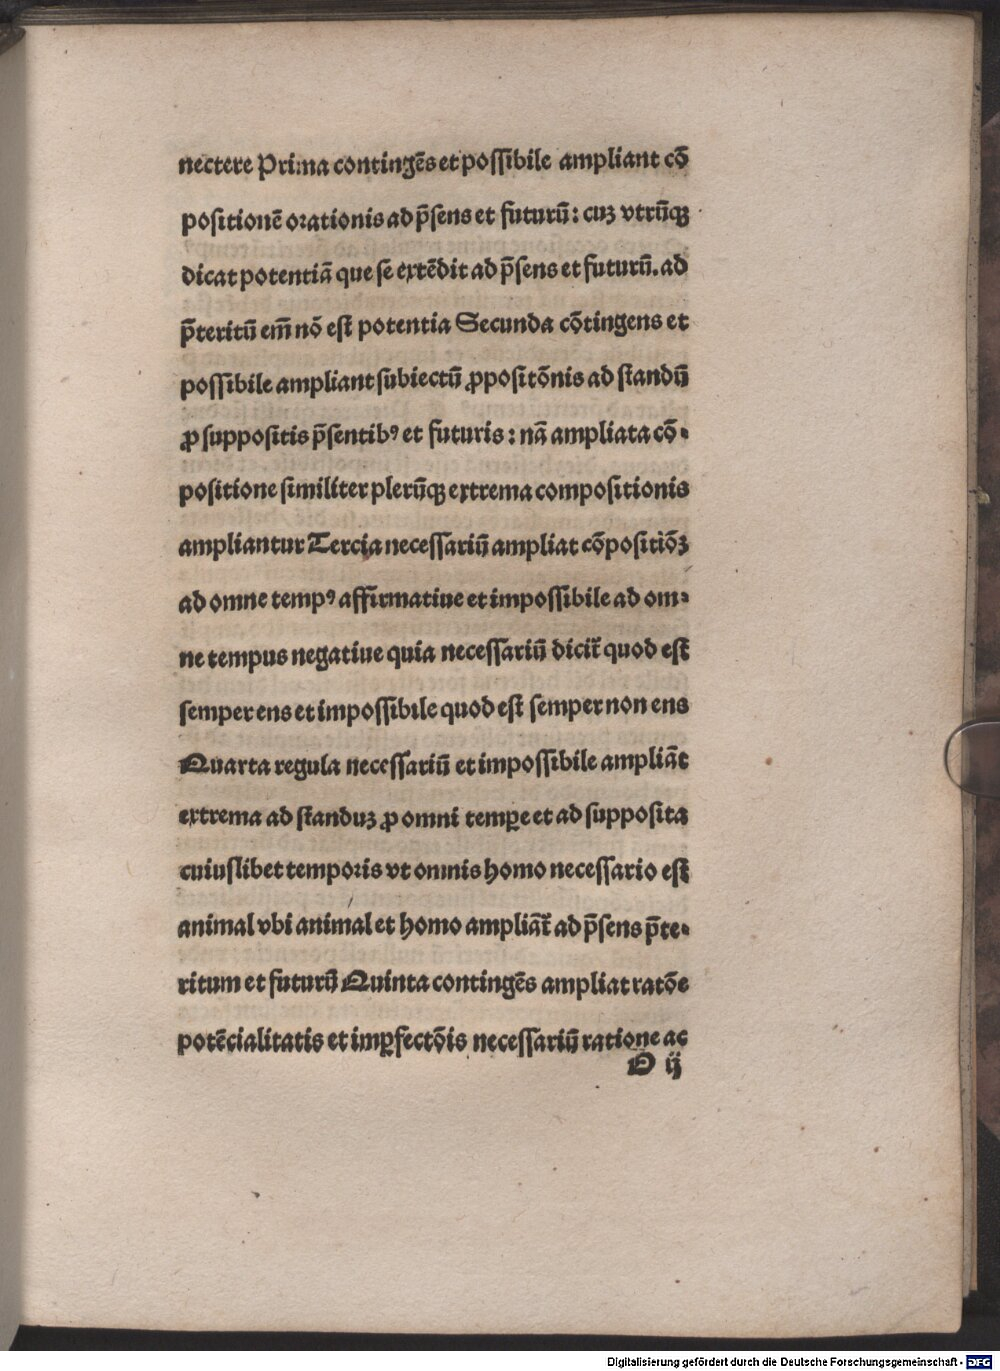 nectere Prima contingẽs et possibile ampliant cõ
positionẽ orationis ad p̃sens et futurũ: cuȝ vtrũqȝ
dicat potentiã que se extẽdit ad p̃sens et futurũ. ad
p̃teritũ em̃ nõ est potentia Secunda cõtingens et
possibile ampliant subiectũ ꝓpositõnis ad standũ
ꝓ suppositis p̃sentibꝰ et futuris: nã ampliata cõ-
positione similiter plerũqȝ extrema compositionis
ampliantur Tercia necessariũ ampliat cõpositiõȝ
ad omne tempꝰ affirmatiue et impossibile ad om-
ne tempus negatiue quia necessariũ dicit̃ quod est
semper ens et impossibile quod est semper non ens
Quarta regula necessariũ et impossibile ampliãt
extrema ad standuȝ ꝓ omni temꝑe et ad supposita
cuiuslibet temporis vt omnis homo necessario est
animal vbi animal et homo ampliãt̃ ad p̃sens p̃te-
ritum et futurũ Quinta contingẽs ampliat ratõe
potẽcialitatis et imꝑfectõis necessariũ ratione ac
O ij
Digitalisierung gefördert durch die Deutsche Forschungsgemeinschaft - DFG